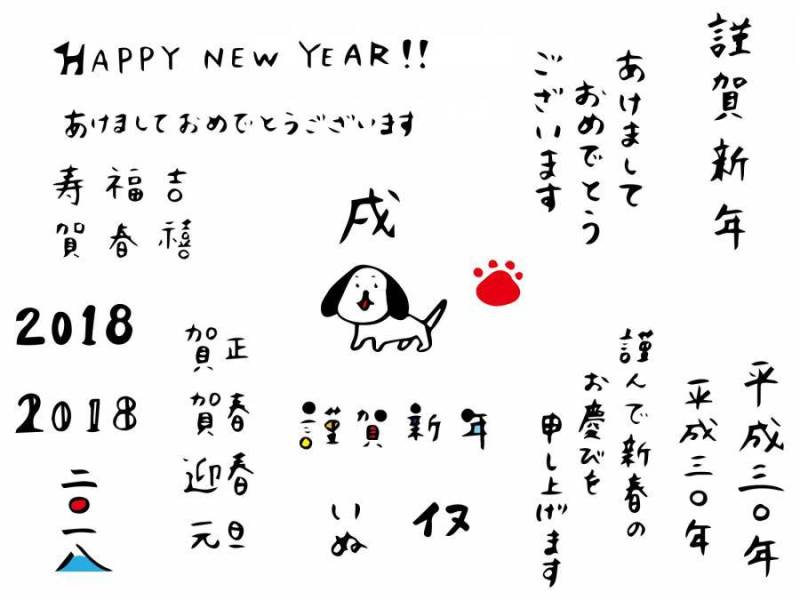 HAPPY NEW YEAR!!
あけましておめでとうございます
寿 福 吉
賀 春 禧
謹賀新年
あけまして
おめでとう
ございます
戌
2018
2018
二〇一八
正月
賀春
迎春
元旦
謹賀新年
いぬ
イヌ
謹んで新春の
お慶びを
申し上げます
平成三〇年
平成三〇年